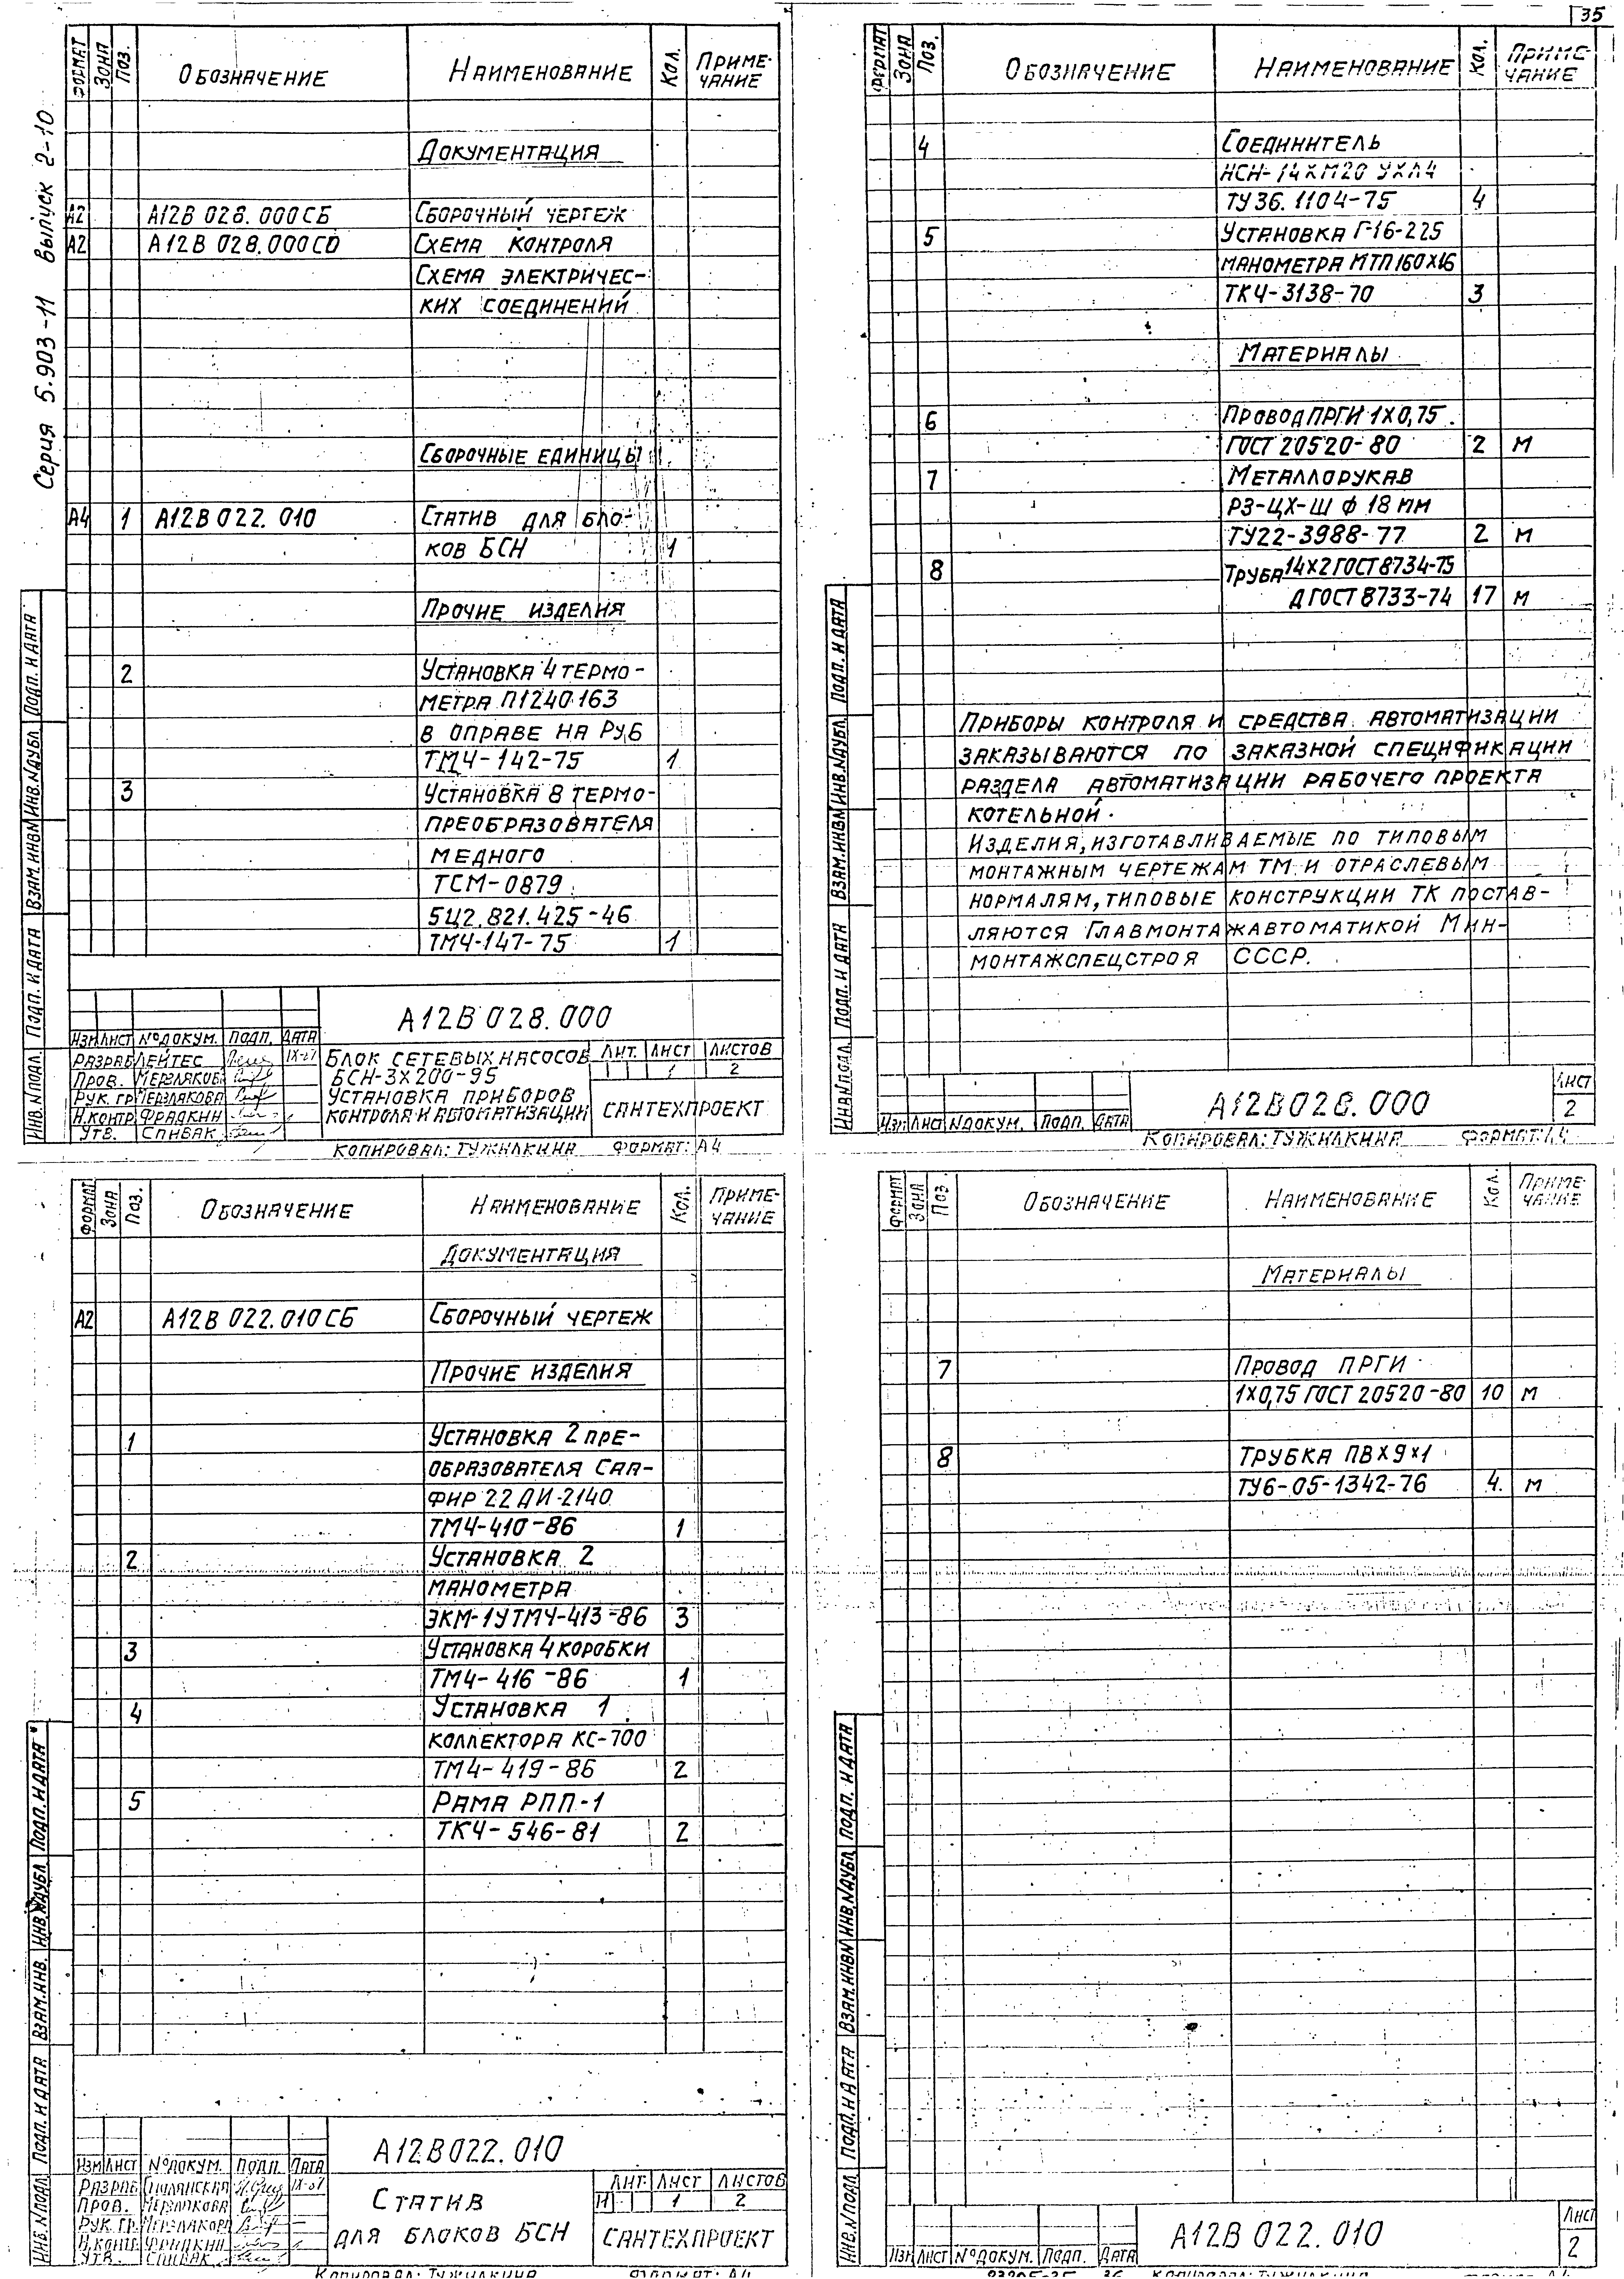 35
Серия 5.903-11 выпуск 2-10
Формат Зона Поз. Обозначение Наименование Кол. Приме-
чание
Документация
А2 А12В 028.000СБ Сборочный чертеж
А2 А12В 028.000СО Схема контроля
Схема электричес-
ких соединений
Сборочные единицы
А4 1 А12В 022.010 Статив для бло-
ков БСН 1
Прочие изделия
2 Установка 4 термо-
метра П1240.163
в оправе на Ру6
ТМ4-142-75 1
3 Установка 8 термо-
преобразователя
медного
ТСМ-0879
5Ц2.821.425-46
ТМ4-147-75 1
Инв.№подл. Подп. и дата Взам.инв№ Инв.№дубл. Подп. и дата
А12В 028.000
Изм Лист №докум. Подп. Дата
Разраб Лейтес
Пров. Мерзлякова
Рук. гр Мерзлякова
Н.контр Фрадкин
Утв. Спивак
Блок сетевых насосов
БСН-3х200-95
Установка приборов
контроля и автоматизации
Лит. Лист Листов
1 2
Сантехпроект
Копировал: Тужилкина Формат: А4
Формат Зона Поз. Обозначение Наименование Кол. Приме-
чание
4 Соединитель
НСН-14хМ20 УХЛ4
ТУ36.1104-75 4
5 Установка Г-16-225
манометра МТП160х16
ТК4-3138-70 3
Материалы
6 Провод ПРГИ 1х0,75
ГОСТ 20520-80 2 м
7 Металлорукав
РЗ-ЦХ-Ш ф 18 мм
ТУ22-3988-77 2 м
8 Труба 14х2 ГОСТ8734-75
Д ГОСТ 8733-74 17 м
Приборы контроля и средства автоматизации
заказываются по заказной спецификации
раздела автоматизации рабочего проекта
котельной.
Изделия, изготавливаемые по типовым
монтажным чертежам ТМ и отраслевым
нормалям, типовые конструкции ТК постав-
ляются Главмонтажавтоматикой Мин-
монтажспецстроя СССР.
Инв№подл. Подп. и дата Взам.инв№ Инв.№дубл. Подп. и дата
Изм Лист №докум. Подп. Дата
А12В028.000
Лист
2
Копировал: Тужилкина Формат: А4
Формат Зона Поз. Обозначение Наименование Кол. Приме-
чание
Документация
А2 А12В 022.010СБ Сборочный чертеж
Прочие изделия
1 Установка 2 пре-
образователя Сап-
фир 22ДИ-2140
ТМ4-410-86 1
2 Установка 2
манометра
ЭКМ-1У ТМ4-413-86 3
3 Установка 4 коробки
ТМ4-416-86 1
4 Установка 1
коллектора КС-700
ТМ4-419-86 2
5 Рама РПП-1
ТК4-546-81 2
Инв.№подл Подп. и дата Взам.инв. Инв.№дубл. Подп. и дата
А12В022.010
Изм Лист №докум. Подп. Дата
Разраб
Пров. Мерзлякова
Рук. гр. Мерзлякова
Н.контр. Фрадкин
Утв. Спивак
Статив
для блоков БСН
Лит. Лист Листов
И 1 2
Сантехпроект
Копировал: Тужилкина Формат: А4
Формат Зона Поз Обозначение Наименование Кол. Приме-
чание
Материалы
7 Провод ПРГИ
1х0,75 ГОСТ 20520-80 10 м
8 Трубка ПВХ9х1
ТУ6-05-1342-76 4. м
Инв.№подл Подп. и дата Взам.инв№ Инв.№дубл. Подп. и дата
Изм Лист №докум. Подп. Дата
А12В 022.010
Лист
2
36 Копировал: Тужилкина